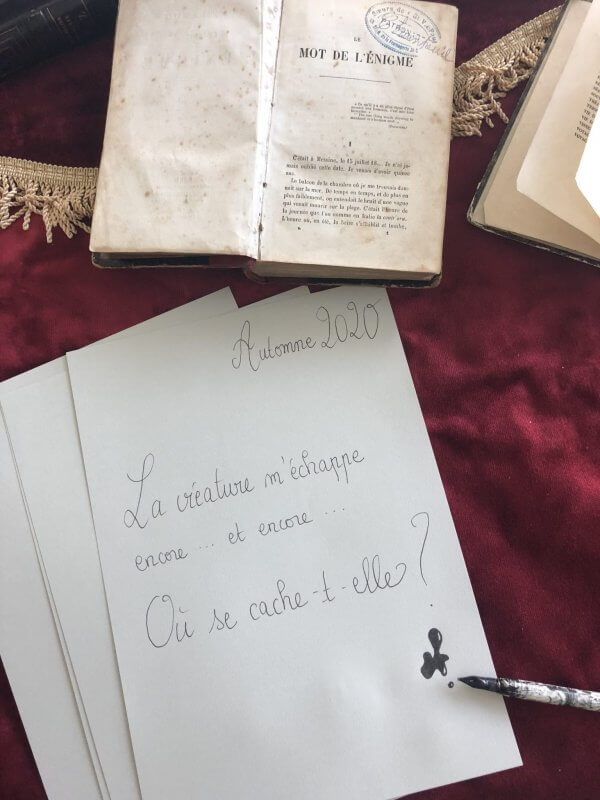 LE
MOT DE L'ÉNIGME
I
C'était à Messine, le 15 juillet 18... Je n'ai ja-
mais oublié cette date. Je venais d'avoir quinze
ans.
Le balcon de la chambre où je me trouvais don-
nait sur la mer. De temps en temps, et de plus en
plus faiblement, on entendait le bruit d'une vague
qui venait mourir sur la plage. C'était l'heure de
la journée que l'on nomme en Italie la contr'ora,
l'heure où, en été, la brise s'affaiblit et tombe,
Automne 2020
La créature m'échappe
encore ... et encore ...
Où se cache-t-elle ?